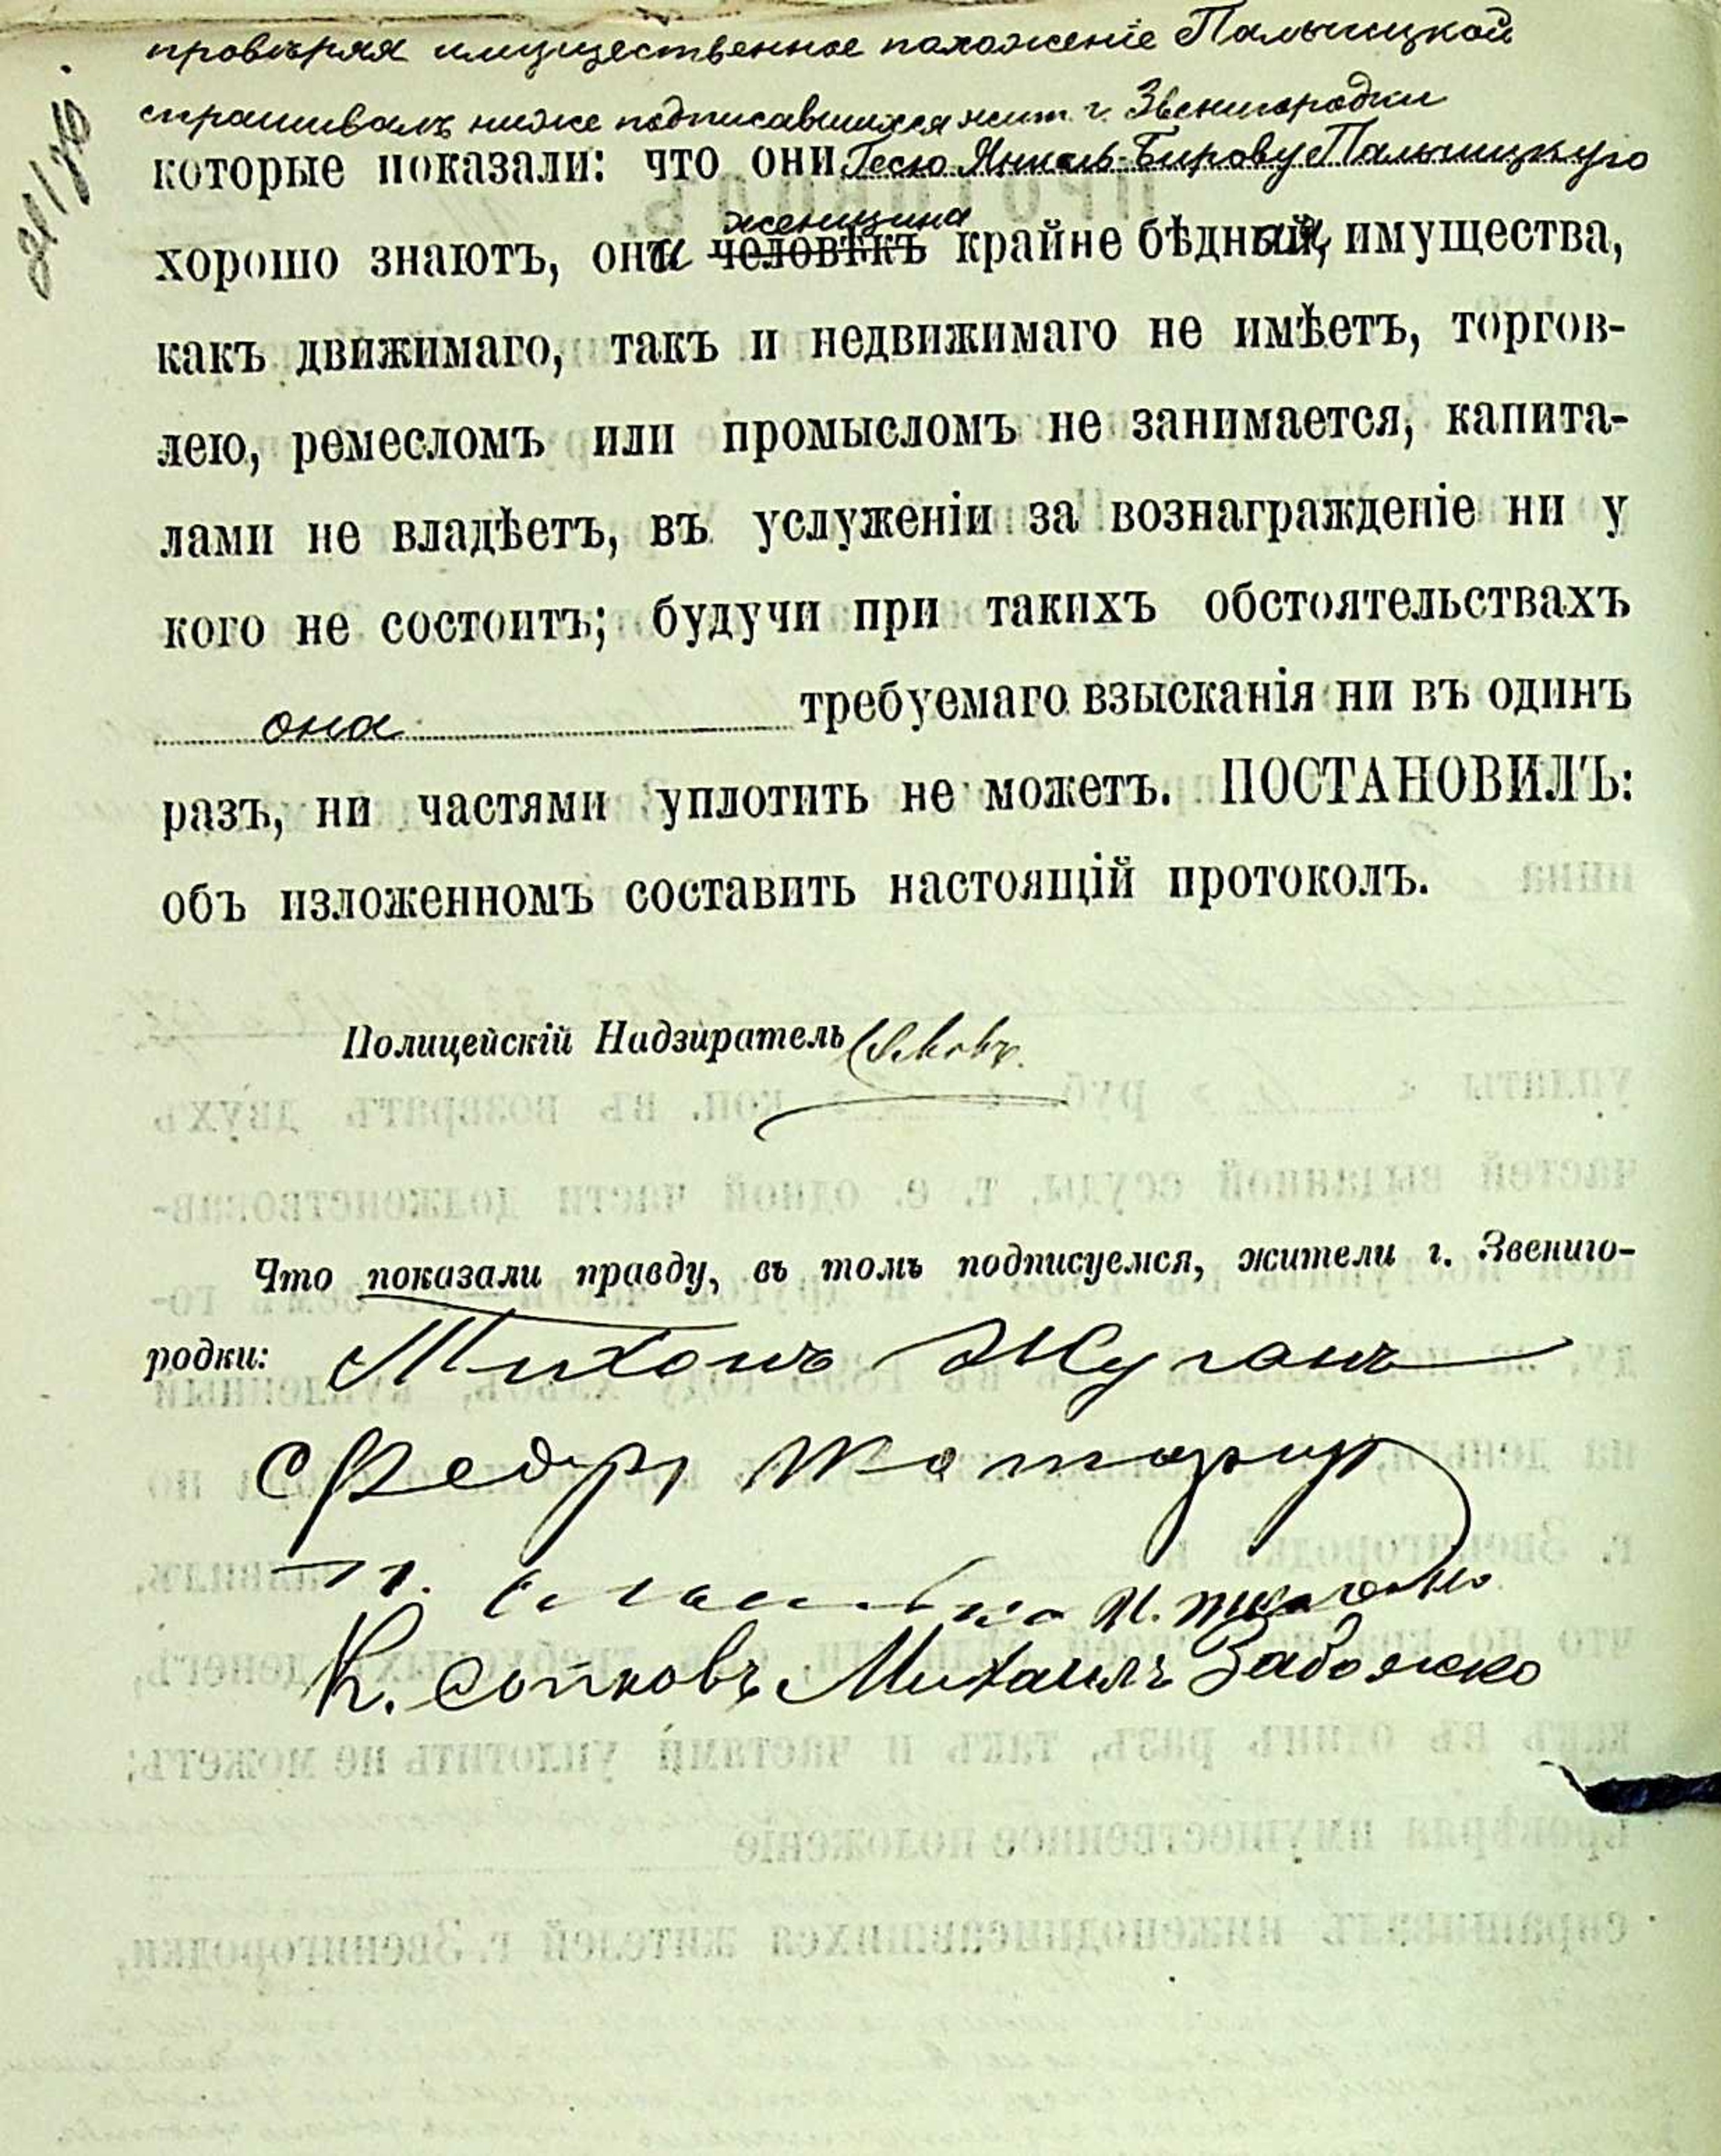 провѣряя имущественное положеніе Пальчицкой
спрашивалъ ниже подписавшихся жит. г. Звенигородки
которые показали: что они Гесю Янкель-Бирову Пальчицкую
женщина
хорошо знаютъ, она человѣкъ крайне бѣдная, имущества,
какъ движимаго, такъ и недвижимаго не имѣетъ, торгов-
лею, ремесломъ или промысломъ не занимается, капита-
лами не владѣетъ, въ услуженіи за вознагражденіе ни у
кого не состоитъ; будучи при такихъ обстоятельствахъ
она требуемаго взысканія ни въ одинъ
разъ, ни частями уплотить не можетъ. ПОСТАНОВИЛЪ:
объ изложенномъ составить настоящій протоколъ.
Полицейскій Надзиратель
Что показали правду, въ томъ подписуемся, жители г. Звениго-
родки: Тихонъ Жуганъ
Федръ
К. Сотковъ Михаилъ Забожко